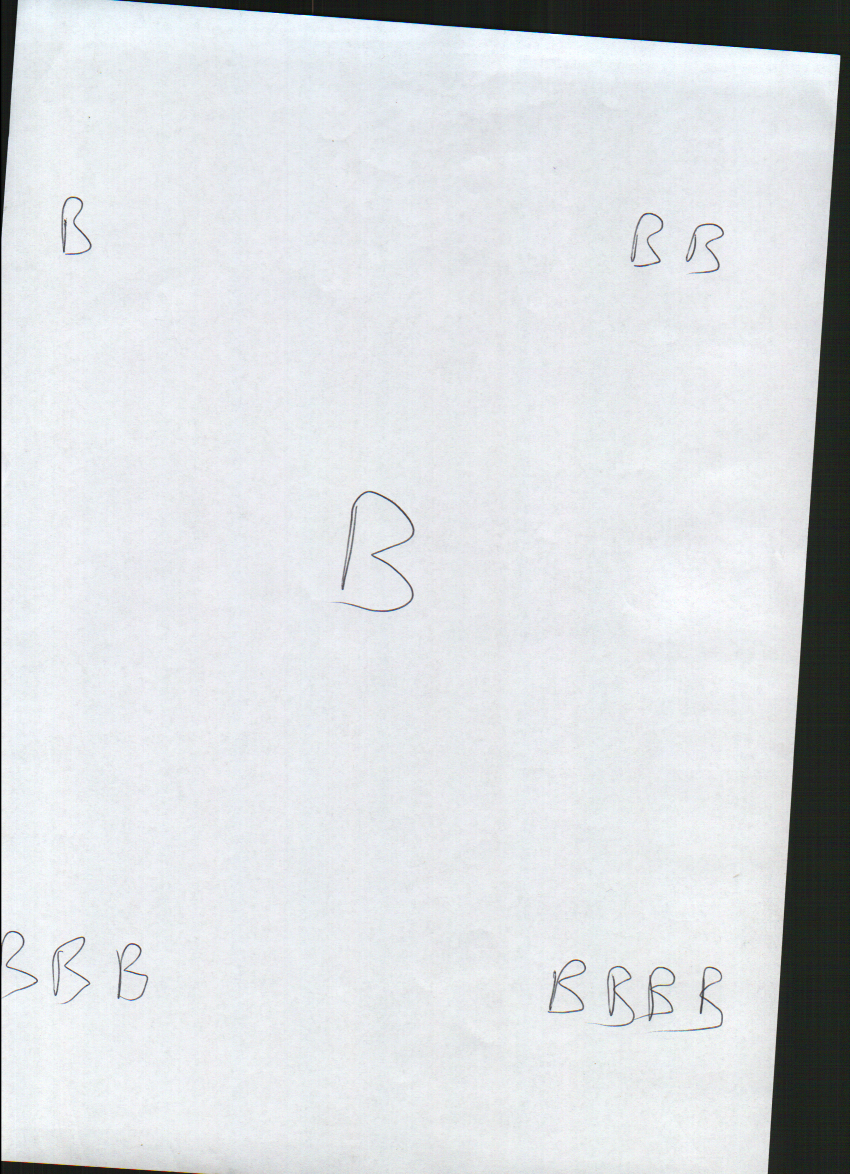 B
B B
B
B B B
B B B B